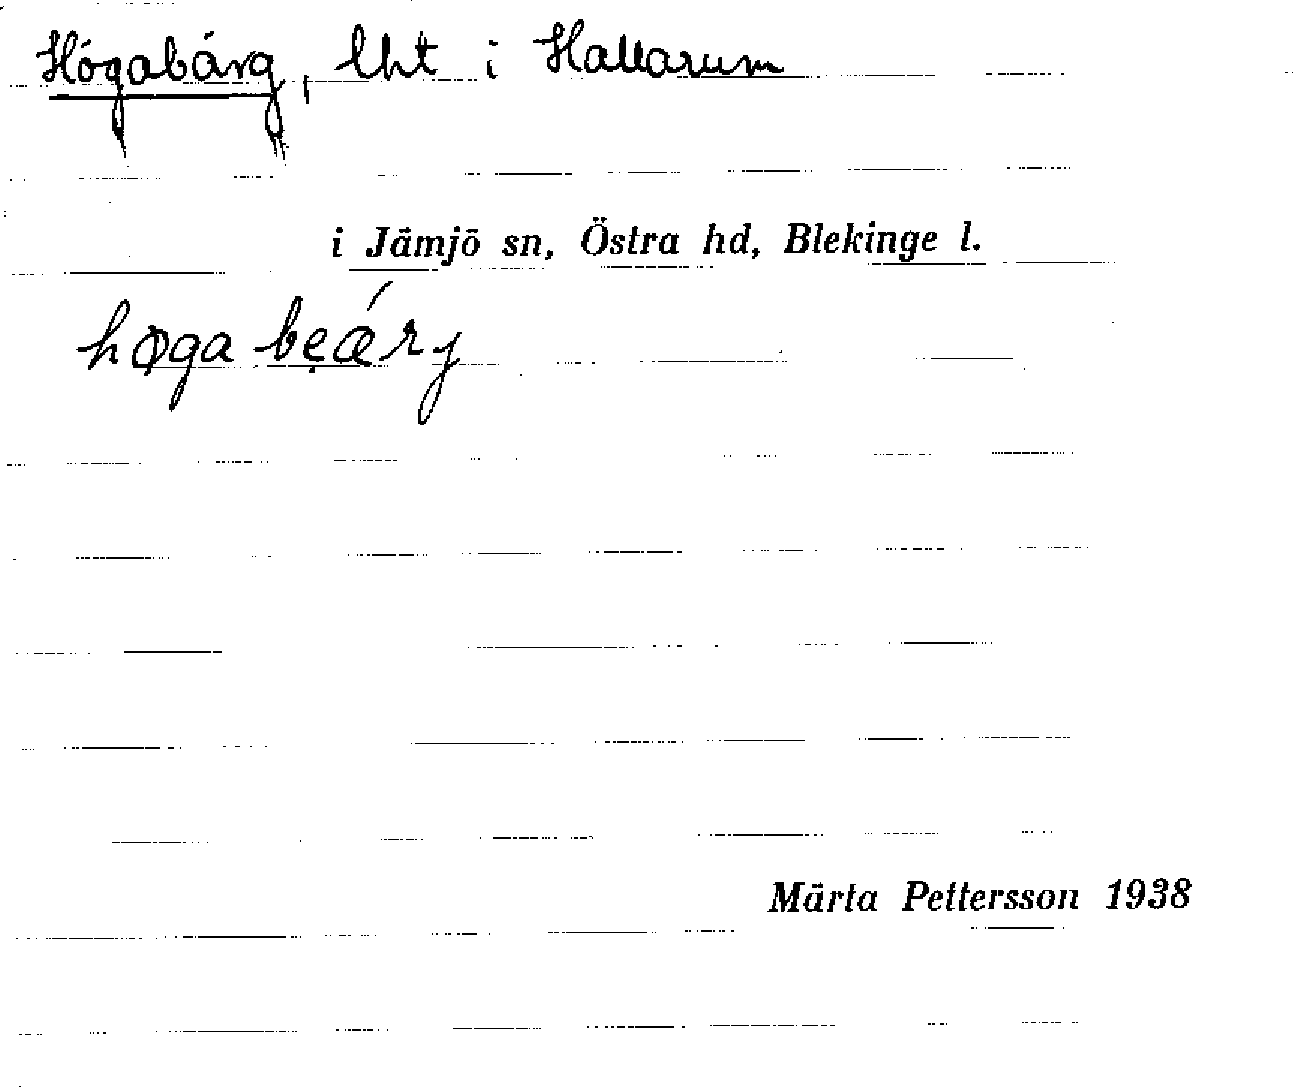 Högabärg, lht i Hallarum
i Jämjö sn, Östra hd, Blekinge l.
høga bẹǽrj
Märta Pettersson 1938